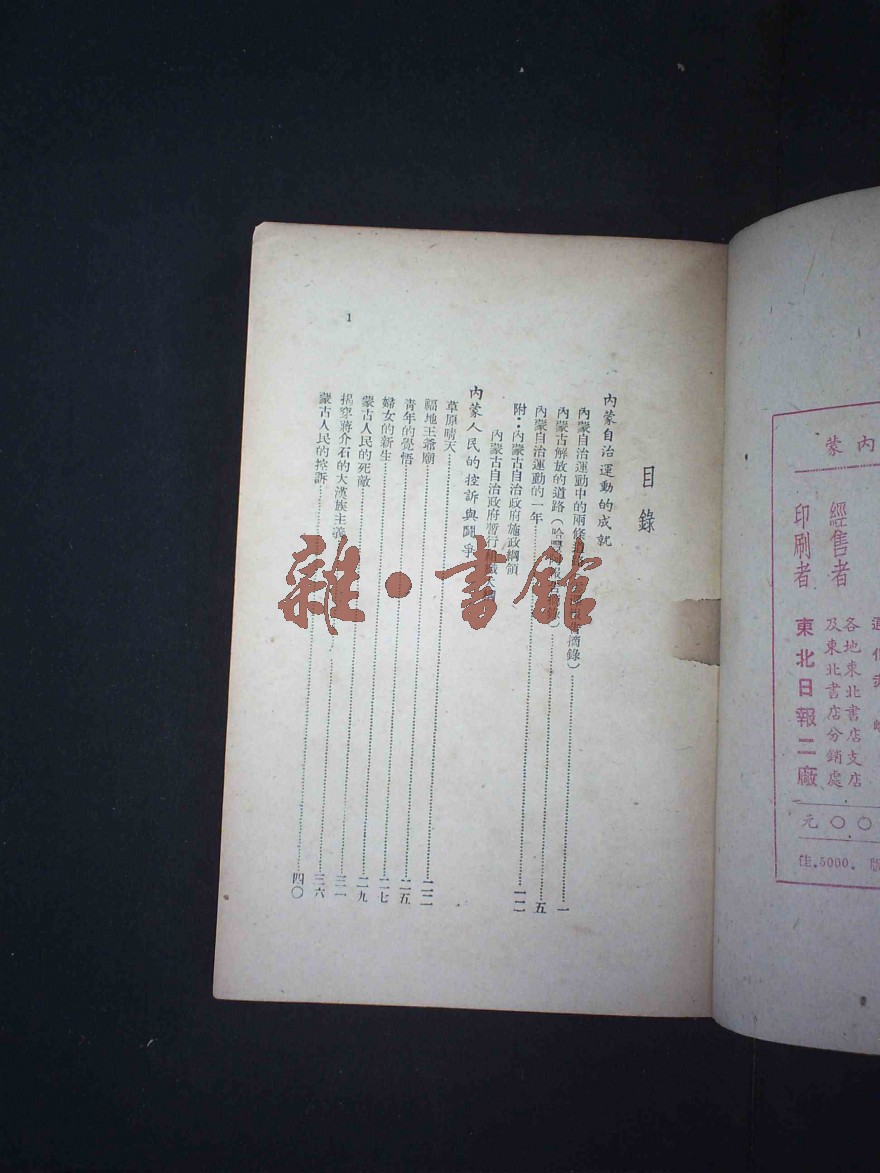 內蒙
經售者
各地東北書店支店
及東北書店分銷處
印刷者
東北日報二廠
元〇〇
佳.5000.版
目錄
內蒙自治運動的成就
內蒙自治運動中的兩條 摘錄）一
內蒙古解放的道路（哈 ）五
內蒙自治運動的一年 一二
附：內蒙古自治政府施政綱領
內蒙古自治政府暫行
內蒙人民的控訴與鬪爭
草原晴天 二二
福地王爺廟 二五
青年的覺悟 二七
婦女的新生 二九
蒙古人民的死敵 三一
揭穿蔣介石的大漢族主義 三六
蒙古人民的控訴 四〇
1
雜·書館